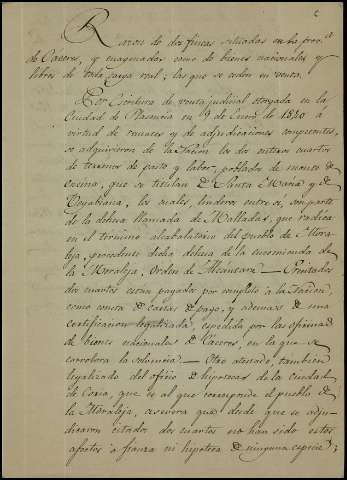 Razon de dos fincas situadas en la prov.ª
de Caceres, y enagenadas como de bienes nacionales y
libres de toda carga real; las que se ceden en venta.
Por Escritura de venta judicial otorgada en la
Ciudad de Plasencia en 9 de Enero de 1840 á
virtud de remates y de adjudicaciones competentes,
se adquirieron de la Nacion los dos enteros cuartos
de terreno de pasto y labor, poblados de monte de
encina, que se titulan de Santa Maria y de
los cuales, linderos entre si, son parte
de la dehesa llamada de Malladas, que radica
en el término alcabalatorio del pueblo de Mora-
leja, procedente dicha dehesa de la encomienda de
la Moraleja, Orden de Alcantara. — Precitados
dos cuartos estan pagados por completo á la Nacion,
como consta de cartas de pago, y ademas de una
certificacion legalizada, espedida por las oficinas
de bienes nacionales de Caceres, en la que se
corrobora la solvencia. — Otro atestado tambien
legalizado del oficio de hipotecas de la ciudad
de Coria, que es al que corresponde el pueblo de
la Moraleja, asevera que desde que se adju-
dicaron citados dos cuartos no han sido estos
afectos á fianza ni hipoteca de ninguna especie;